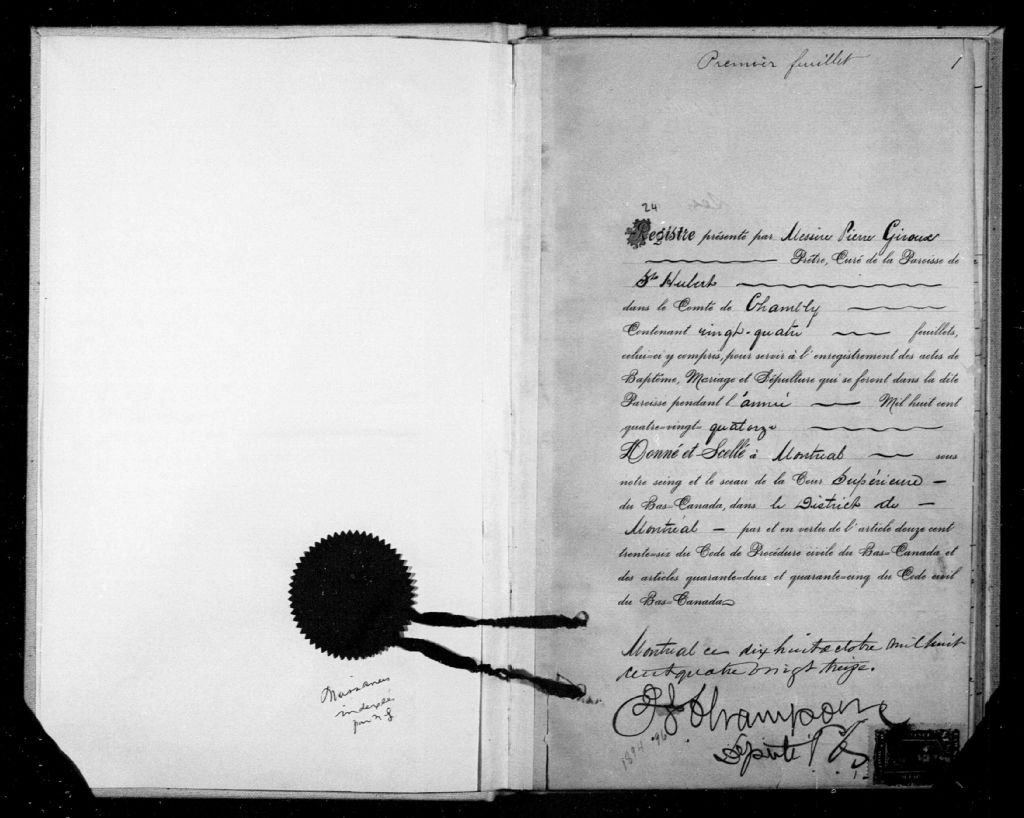 Naissances
indexées
par n g
Premier feuillet 1
24
Registre présenté par Messire Pierre Giroux
Prêtre, Curé de la Paroisse de
St Hubert
dans le Comté de Chambly
Contenant vingt-quatre feuillets,
celui-ci y compris, pour servir à l'enregistrement des actes de
Baptême, Mariage et Sépulture qui se feront dans la dite
Paroisse pendant l'année Mil huit cent
quatre-vingt- quatorze
Donné et Scellé à Montreal sous
notre seing et le sceau de la Cour Supérieure
du Bas-Canada, dans le District de
Montréal par et en vertu de l'article douze cent
trente-six du Code de Procédure civile du Bas-Canada et
des articles quarante-deux et quarante-cinq du Code civil
du Bas-Canada
Montreal ce dix huit octobre mil huit
cent quatre vingt treize.
Champoux
Député P.
1894-96